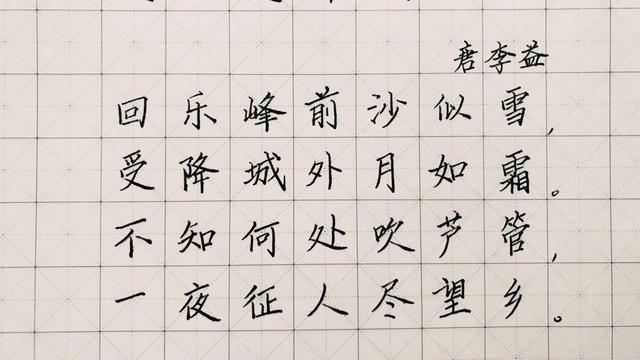 唐李益
回乐峰前沙似雪,
受降城外月如霜。
不知何处吹芦管,
一夜征人尽望乡。